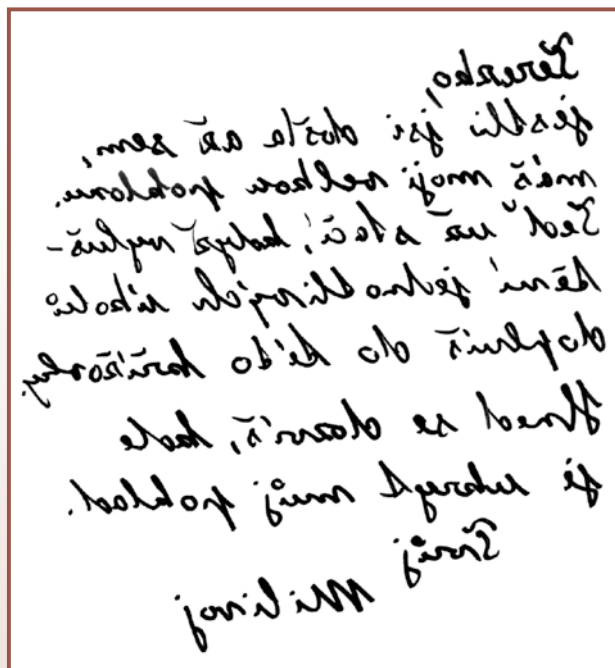 Terezko,
jestli jsi došla až sem,
máš moji velkou poklonu.
Teď už stačí, když vyluš-
tění jednotlivých úkolů
doplníš do této křížovky.
Hned se dozvíš, kde
je ukryt můj poklad.
Tvůj
Milivoj